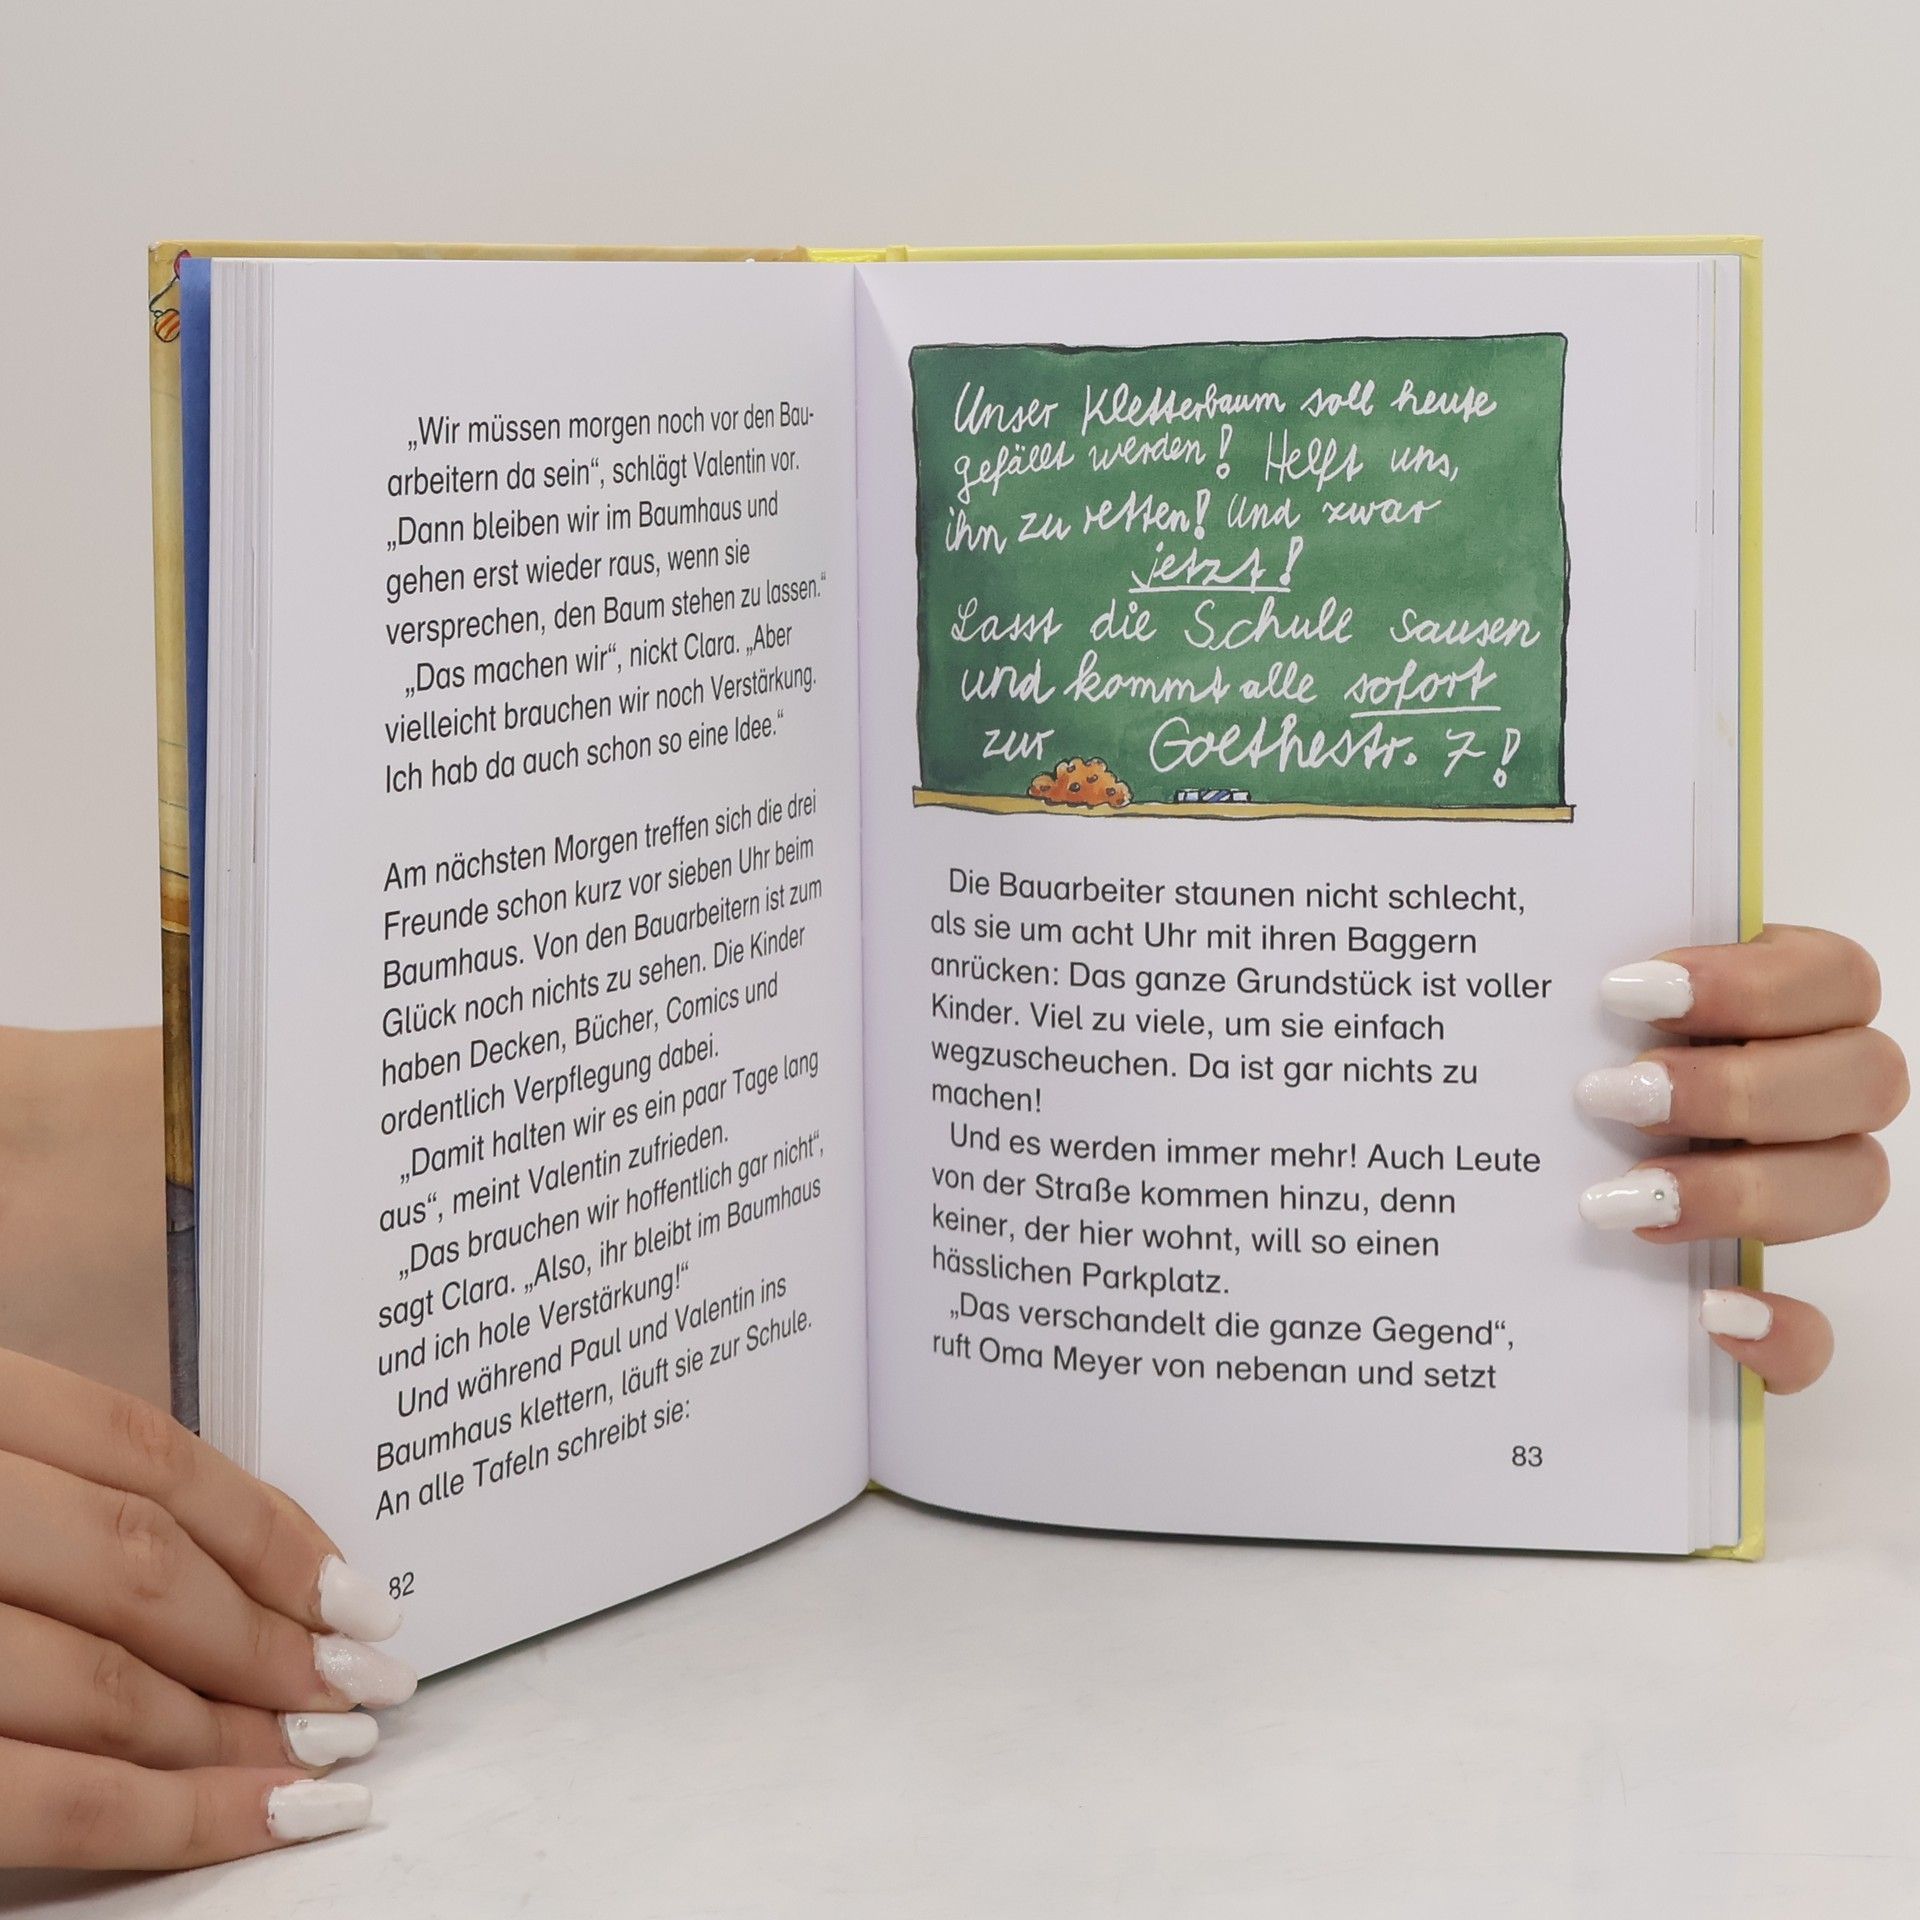 „Wir müssen morgen noch vor den Bau-
arbeitern da sein“, schlägt Valentin vor.
„Dann bleiben wir im Baumhaus und
gehen erst wieder raus, wenn sie
versprechen, den Baum stehen zu lassen.“
„Das machen wir“, nickt Clara. „Aber
vielleicht brauchen wir noch Verstärkung.
Ich hab da auch schon so eine Idee.“
Am nächsten Morgen treffen sich die drei
Freunde schon kurz vor sieben Uhr beim
Baumhaus. Von den Bauarbeitern ist zum
Glück noch nichts zu sehen. Die Kinder
haben Decken, Bücher, Comics und
ordentlich Verpflegung dabei.
„Damit halten wir es ein paar Tage lang
aus“, meint Valentin zufrieden.
„Das brauchen wir hoffentlich gar nicht“,
sagt Clara. „Also, ihr bleibt im Baumhaus
und ich hole Verstärkung!“
Und während Paul und Valentin ins
Baumhaus klettern, läuft sie zur Schule.
An alle Tafeln schreibt sie:
82
Unser Kletterbaum soll heute
gefällt werden! Helft uns,
ihn zu retten! Und zwar
jetzt!
Lasst die Schule sausen
und kommt alle sofort
zur Goethestr. 7!
Die Bauarbeiter staunen nicht schlecht,
als sie um acht Uhr mit ihren Baggern
anrücken: Das ganze Grundstück ist voller
Kinder. Viel zu viele, um sie einfach
wegzuscheuchen. Da ist gar nichts zu
machen!
Und es werden immer mehr! Auch Leute
von der Straße kommen hinzu, denn
keiner, der hier wohnt, will so einen
hässlichen Parkplatz.
„Das verschandelt die ganze Gegend“,
ruft Oma Meyer von nebenan und setzt
83